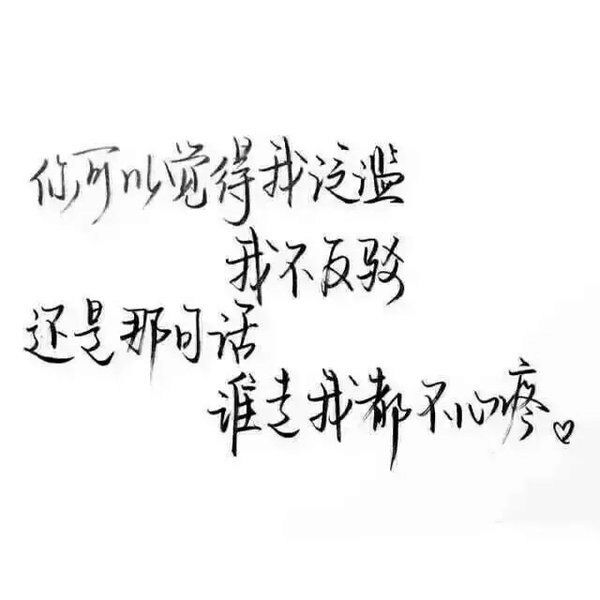 你可以觉得我泛滥
我不反驳
还是那句话
谁走我都不心疼。